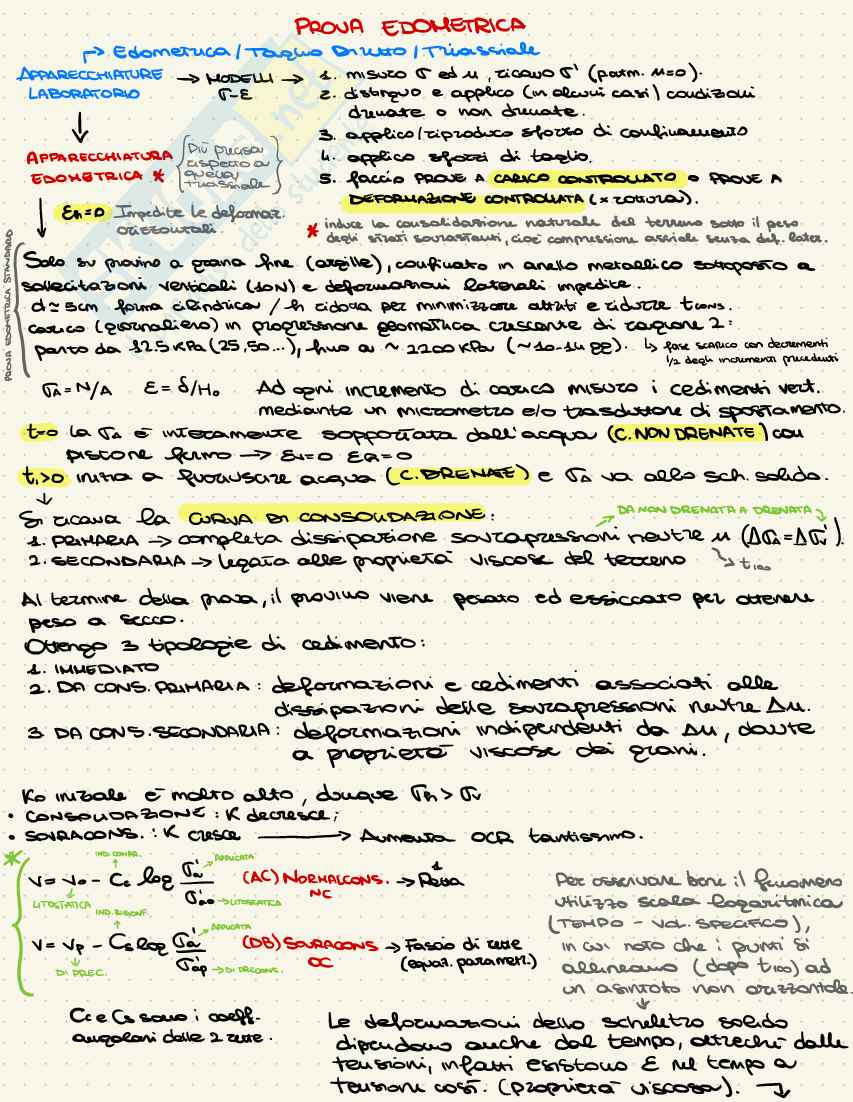 PROVA EDOMETRICA
→ Edometrica / Taglio Diretto / Triassiale
APPARECCHIATURE LABORATORIO → MODELLI σ-ε → 1. misuro σ ed u, ricavo σ' (patm. u=0).
2. distinguo e applico (in alcuni casi) condizioni
drenate o non drenate.
3. applico/riproduco sforzo di confinamento
4. applico sforzi di taglio.
5. faccio PROVE A CARICO CONTROLLATO o PROVE A
DEFORMAZIONE CONTROLLATA (× rottura).
APPARECCHIATURA
EDOMETRICA *
Più precisa
rispetto a
quella
triassiale
εh=0 Impedite le deformaz.
orizzontali.
* induce la consolidazione naturale del terreno sotto il peso
degli strati sovrastanti, cioè compressione assiale senza def. later.
PROVA EDOMETRICA STANDARD
Solo su provino a grana fine (argille), confinato in anello metallico sottoposto a
sollecitazioni verticali (10N) e deformazioni laterali impedite.
d ≃ 5cm forma cilindrica / h ridotta per minimizzare attriti e ridurre tcons.
carico (giornaliero) in progressione geometrica crescente di ragione 2:
parto da 12.5 KPa (25,50...), fino a ~ 2200 KPa (~10-14 gg). ↳ fase SCARICO con decrementi
1/2 degli incrementi precedenti
σA = N/A ε = δ/H₀ Ad ogni incremento di carico misuro i cedimenti vert.
mediante un micrometro e/o trasduttore di spostamento.
t=0 la σA è interamente sopportata dall'acqua (C. NON DRENATE) con
pistone fermo → εv=0 εa=0
t₁>0 inizia a fuoriuscire acqua (C. DRENATE) e σA va allo sch. solido.
↓
Si ricava la CURVA DI CONSOLIDAZIONE:
DA NON DRENATA A DRENATA
1. PRIMARIA → completa dissipazione sovrapressioni neutre u (ΔσA=Δσ'v).
2. SECONDARIA → legata alle proprietà viscose del terreno ↳ t₁₀₀
Al termine della prova, il provino viene pesato ed essiccato per ottenere
peso a secco.
Ottengo 3 tipologie di cedimento:
1. IMMEDIATO
2. DA CONS. PRIMARIA: deformazioni e cedimenti associati alle
dissipazioni delle sovrapressioni neutre Δu.
3 DA CONS. SECONDARIA: deformazioni indipendenti da Δu, dovute
a proprietà viscose dei grani.
K₀ iniziale è molto alto, dunque σh > σv
• CONSOLIDAZIONE: K decresce;
• SOVRACONS.: K cresce → Aumenta OCR tantissimo.
*
IND. COMPR. APPLICATA
v = v₀ - Cc log σ'a/σ'a₀ (AC) NORMALCONS. NC → 1 Retta
LITOSTATICA → LITOSTATICA
IND. RIGONF. APPLICATA
v = vp - Cs log σ'a/σ'ap (DB) SOVRACONS OC → Fascio di rette
(equaz. parametr.)
DI PREC. → DI PRECONS.
Per osservare bene il fenomeno
utilizzo scala logaritmica
(TEMPO - VOL. SPECIFICO),
in cui noto che i punti si
allineano (dopo t₁₀₀) ad
un asintoto non orizzontale.
Cc e Cs sono i coeff.
angolari delle 2 rette.
Le deformazioni dello scheletro solido
dipendono anche dal tempo, oltreché dalle
tensioni, infatti esistono ε nel tempo a
tensioni cost. (proprietà viscosa). →